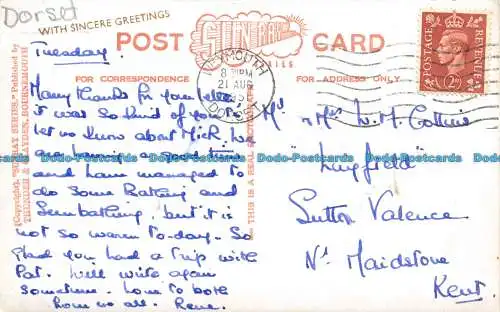 Dorset
WITH SINCERE GREETINGS
POST CARD
SUNRAY
SERIES
FOR CORRESPONDENCE
FOR ADDRESS ONLY
WEYMOUTH
21 AUG
DORSET
POSTAGE
REVENUE
2D
(Copyright). "SUNRAY SERIES." Published by
THUNDER & CLAYDEN, BOURNEMOUTH
THIS IS A REAL
Tuesday.
Many thanks for your letter
it was so kind of you to
let us know about Mick. We
are having a good time
and have managed to
do some Bathing and
Sunbathing, but it is
not so warm to-day. So
glad you had a trip with
Pat. Will write again
sometime. Love to both
from us all. Rene.
Mr & Mrs W. M. Collins
"Lingfield"
Sutton Valence
Nr Maidstone
Kent.
Dodo-Postcards Dodo-Postcards Dodo-Postcards Dodo-Postcards